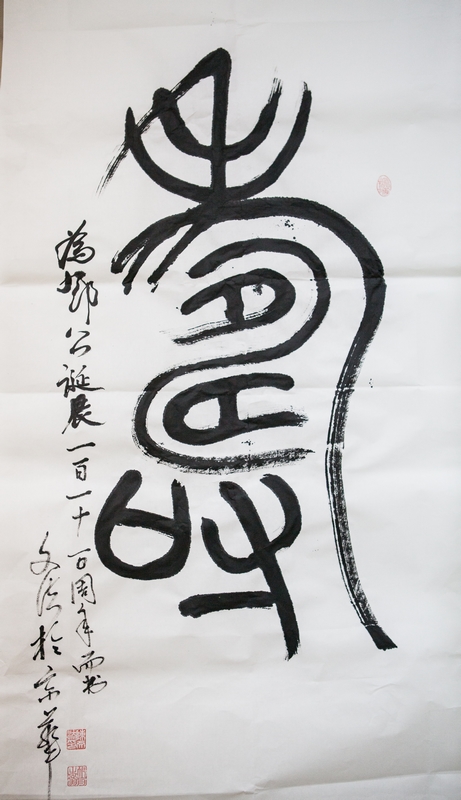 壽
為鄧公誕辰一百一十百周年而
文 於京華